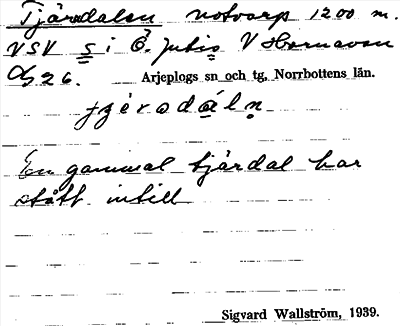 Tjärdalen notvarp 1200 m.
VSV s i Ö. Jutis V Hornavan
26. Arjeplogs sn och tg, Norrbottens län.
En gammal tjärdal har
stått intill
Sigvard Wallström, 1939.